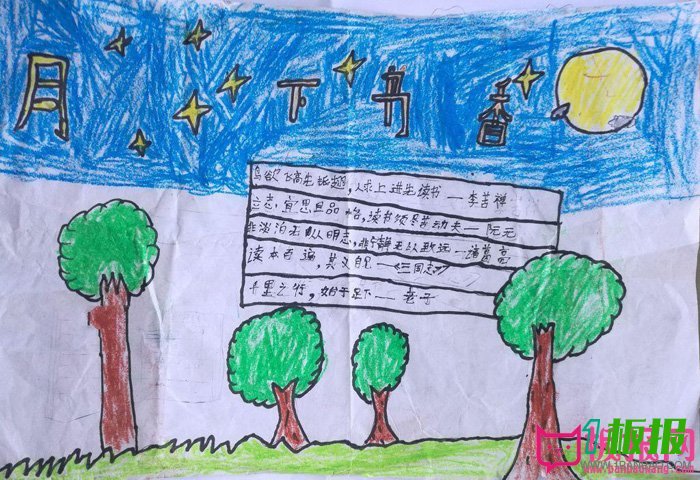 月下书香
鸟欲飞高先振翅,人求上进先读书——李苦禅
立志宜思真品格,读书须尽苦功夫——阮元
非淡泊无以明志,非宁静无以致远——诸葛亮
读本百遍,其义自见——《三国志》
千里之行,始于足下——老子
板报
WWW.1BANBAO.COM